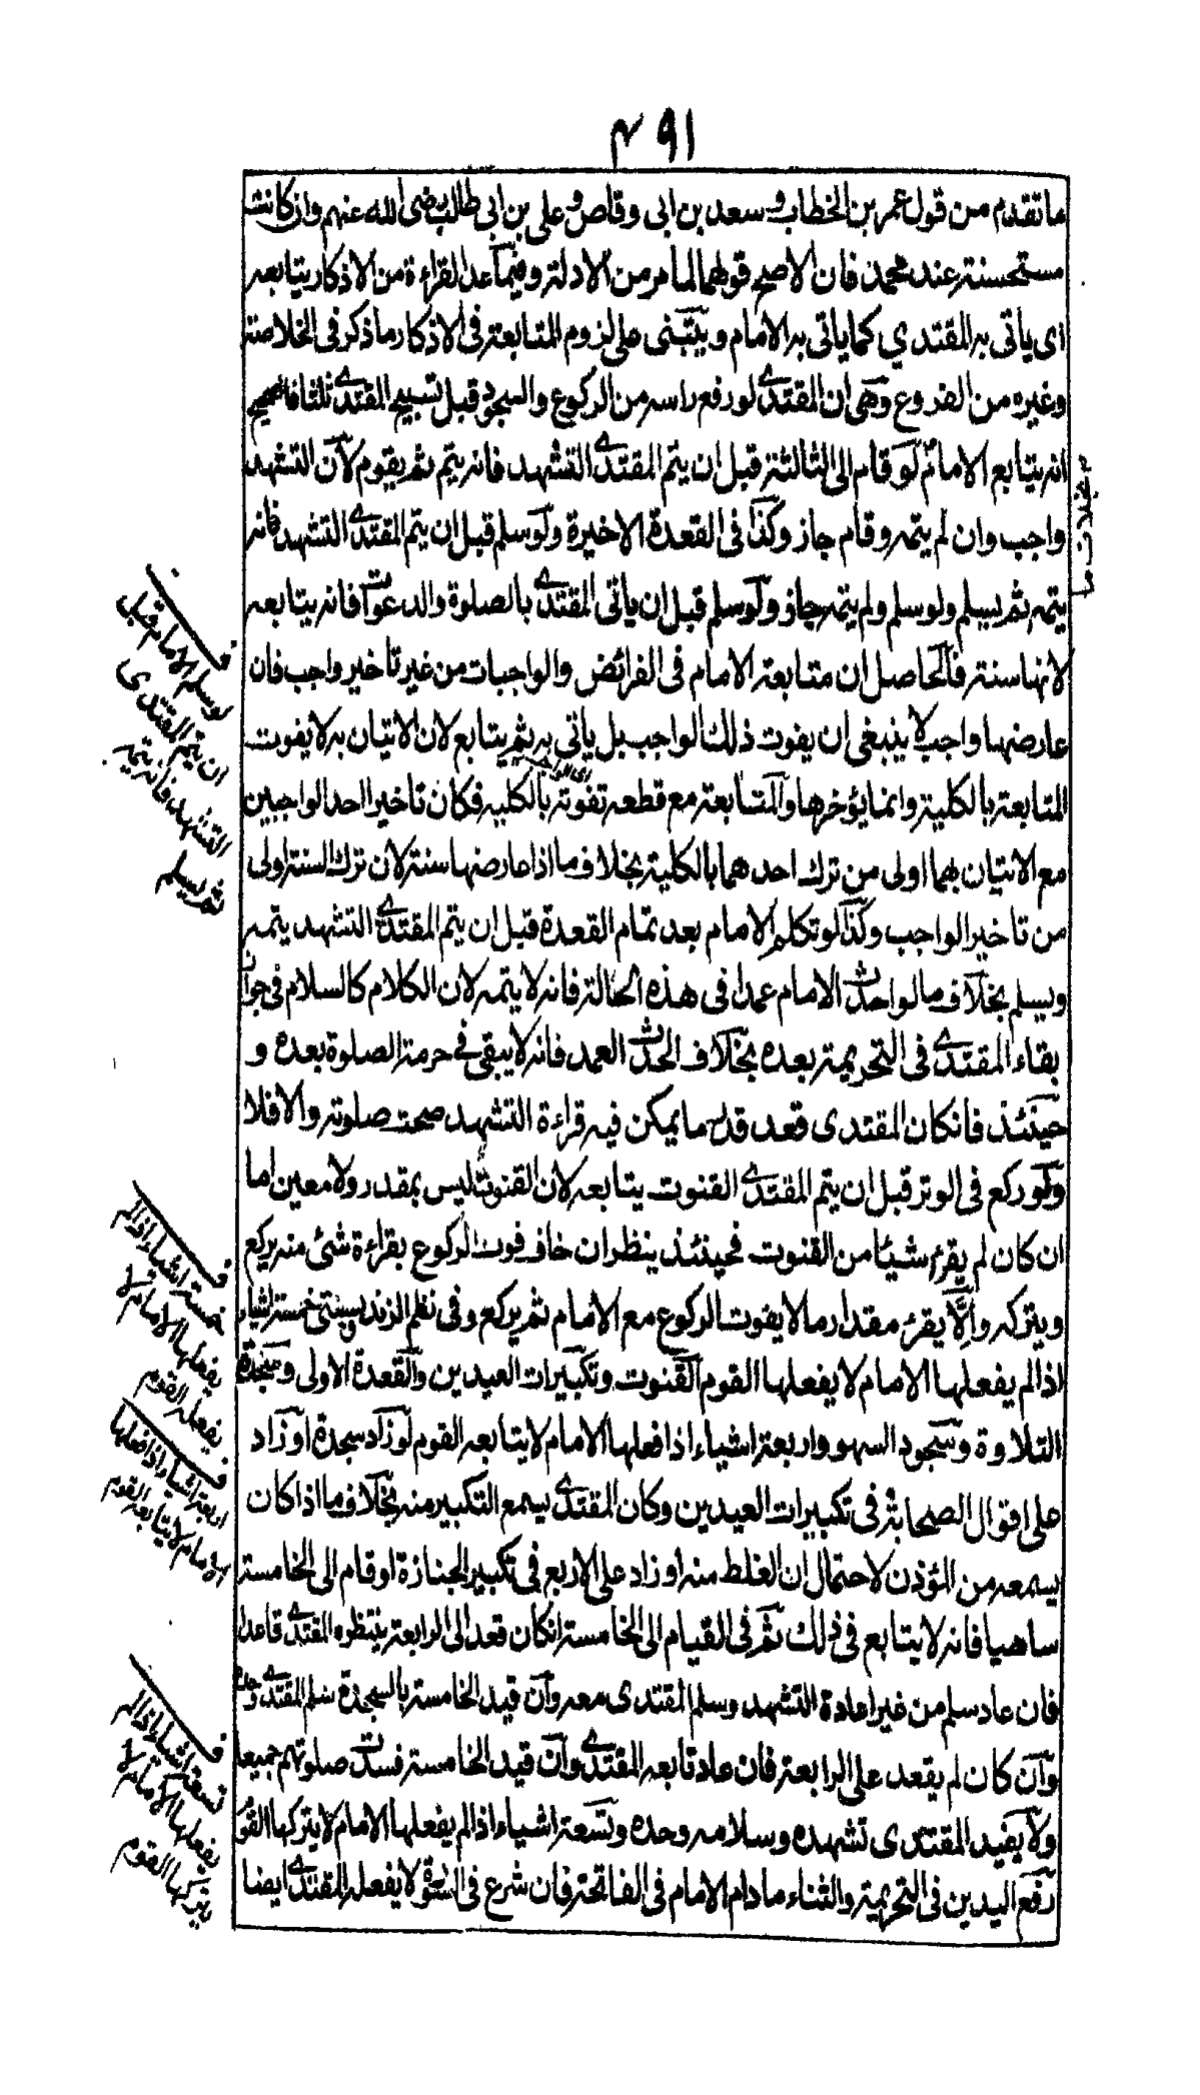 ٤٩١
ما تقدم من قول عمر بن الخطاب و سعد بن ابی وقاص و علی بن ابی طالب رضی الله عنهم وان كانت
مستحسنة عند محمد فان الاصح قولهما لما مر من الادلة وفيما عدا القراءة من الاذكار يتابعه
ای ياتی به المقتدي كما ياتی به الامام ويبتنی علی لزوم المتابعة فی الاذكار ما ذكر فی الخلاصة
وغيره من الفروع وهی ان المقتدی لو رفع راسه من الركوع والسجود قبل تسبيح المقتدی ثلثا فالصحيح
انه يتابع الامام لو قام الی الثالثة قبل ان يتم المقتدی التشهد فانه يتم ثم يقوم لان التشهد
واجب وان لم يتمه وقام جاز وكذا فی القعدة الاخيرة ولو سلم قبل ان يتم المقتدی التشهد فانه
يتمه ثم يسلم ولو سلم ولم يتمه جاز ولو سلم قبل ان ياتی المقتدی بالصلوة والدعوات فانه يتابعه
لانها سنة فالحاصل ان متابعة الامام فی الفرائض والواجبات من غير تاخير واجب فان
عارضها واجب لا ينبغی ان يفوت ذلك الواجب بل ياتی به ثم يتابع لان الاتيان به لا يفوت
ای الواجب
المتابعة بالكلية وانما يؤخرها والمتابعة مع قطعه تفوته بالكليه فكان تاخير احد الواجبين
مع الاتيان بهما اولی من ترك احدهما بالكلية بخلاف ما اذا عارضها سنة لان ترك السنة اولی
من تاخير الواجب وكذا لو تكلم الامام بعد تمام القعدة قبل ان يتم المقتدی التشهد يتمه
ويسلم بخلاف ما لو احدث الامام عمدا فی هذه الحالة فانه لا يتمه لان الكلام كالسلام فی جواز
بقاء المقتدی فی التحريمة بعده بخلاف الحدث العمد فانه لا يبقی فی حرمة الصلوة بعده و
حينئذ فانكان المقتدی قعد قدر ما يمكن فيه قراءة التشهد صحت صلوته والا فلا
ولو ركع فی الوتر قبل ان يتم المقتدی القنوت يتابعه لان القنوت ليس بمقدر ولا معين اما
ان كان لم يقرء شيئا من القنوت فحينئذ ينظر ان خاف فوت الركوع بقراءة شئ منه يركع
ويتركه والا يقرء مقدار ما لا يفوت الركوع مع الامام ثم يركع وفی نظم الزندويستی خمسة اشياء
اذا لم يفعلها الامام لا يفعلها القوم القنوت وتكبيرات العيدين والقعدة الاولی وسجدة
التلاوة وسجود السهو واربعة اشياء اذا فعلها الامام لا يتابعه القوم لو زاد سجدة او زاد
علی اقوال الصحابة فی تكبيرات العيدين وكان المقتدی يسمع التكبير منه بخلاف ما اذا كان
يسمعه من المؤذن لاحتمال ان الغلط منه او زاد علی الاربع فی تكبير الجنازة او قام الی الخامسة
ساهيا فانه لا يتابع فی ذلك ثم فی القيام الی الخامسة انكان قعد الی الرابعة ينتظره المقتدی قاعدا
فان عاد سلم من غير اعادة التشهد وسلم المقتدی معه وان قيد الخامسة بالسجدة سلم المقتدی وحده
وان كان لم يقعد علی الرابعة فان عاد تابعه المقتدی وان قيد الخامسة فسدت صلوتهم جميعا
ولا يفيد المقتدی تشهده وسلامه وحده وتسعة اشياء اذا لم يفعلها الامام لا يتركها القوم
رفع اليدين فی التحريمة والثناء ما دام الامام فی الفاتحة فان شرع فی السورة لا يفعله المقتدی ايضا
بخلاف ما
ف
لو سلم الامام قبل
ان يتم المقتدی
التشهد فانه يتمه
ثم يسلم
ف
خمسة اشياء اذا لم
يفعلها الامام لا
يفعله القوم
ف
اربعة اشياء اذا فعلها
الامام لا يتابعه القوم
ف
تسعة اشياء اذا لم
يفعلها الامام لا
يتركها القوم